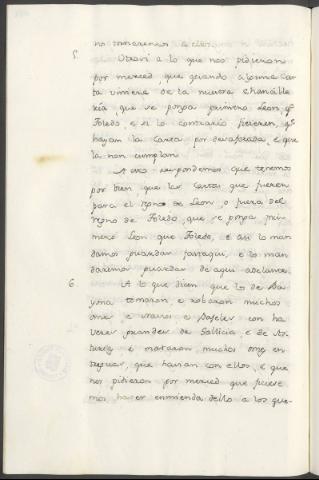 no
5. Otrosi a lo que nos pidieron
por merced, que quando alguna Car
ta viniere de la nuestra Chancille
ria que se ponga primero Leon, qe
Toledo, e si lo contrario ficieren, qe
hayan la Carta por desaforada, e que
la non cumplan.
A esto respondemos, que tenemos
por bien, que las cartas que fueren
para el Regno de Leon, o fuera del
regno de Toledo, que se ponga pri
mero Leon que Toledo, e asi lo man
damos guardar fasta aqui, e lo man
daremos guardar de aqui adelante.
6. A lo que dicen que los de Ba
yona tomaron, e robaron muchos
ome e navios e baxeles con ha
veres grandes de Gallicia, e de As
turias e mataron muchos omes en
treguas, que havian con ellos, e que
nos pidieron por merced que ficiese
mos haser enmienda dello a los que-